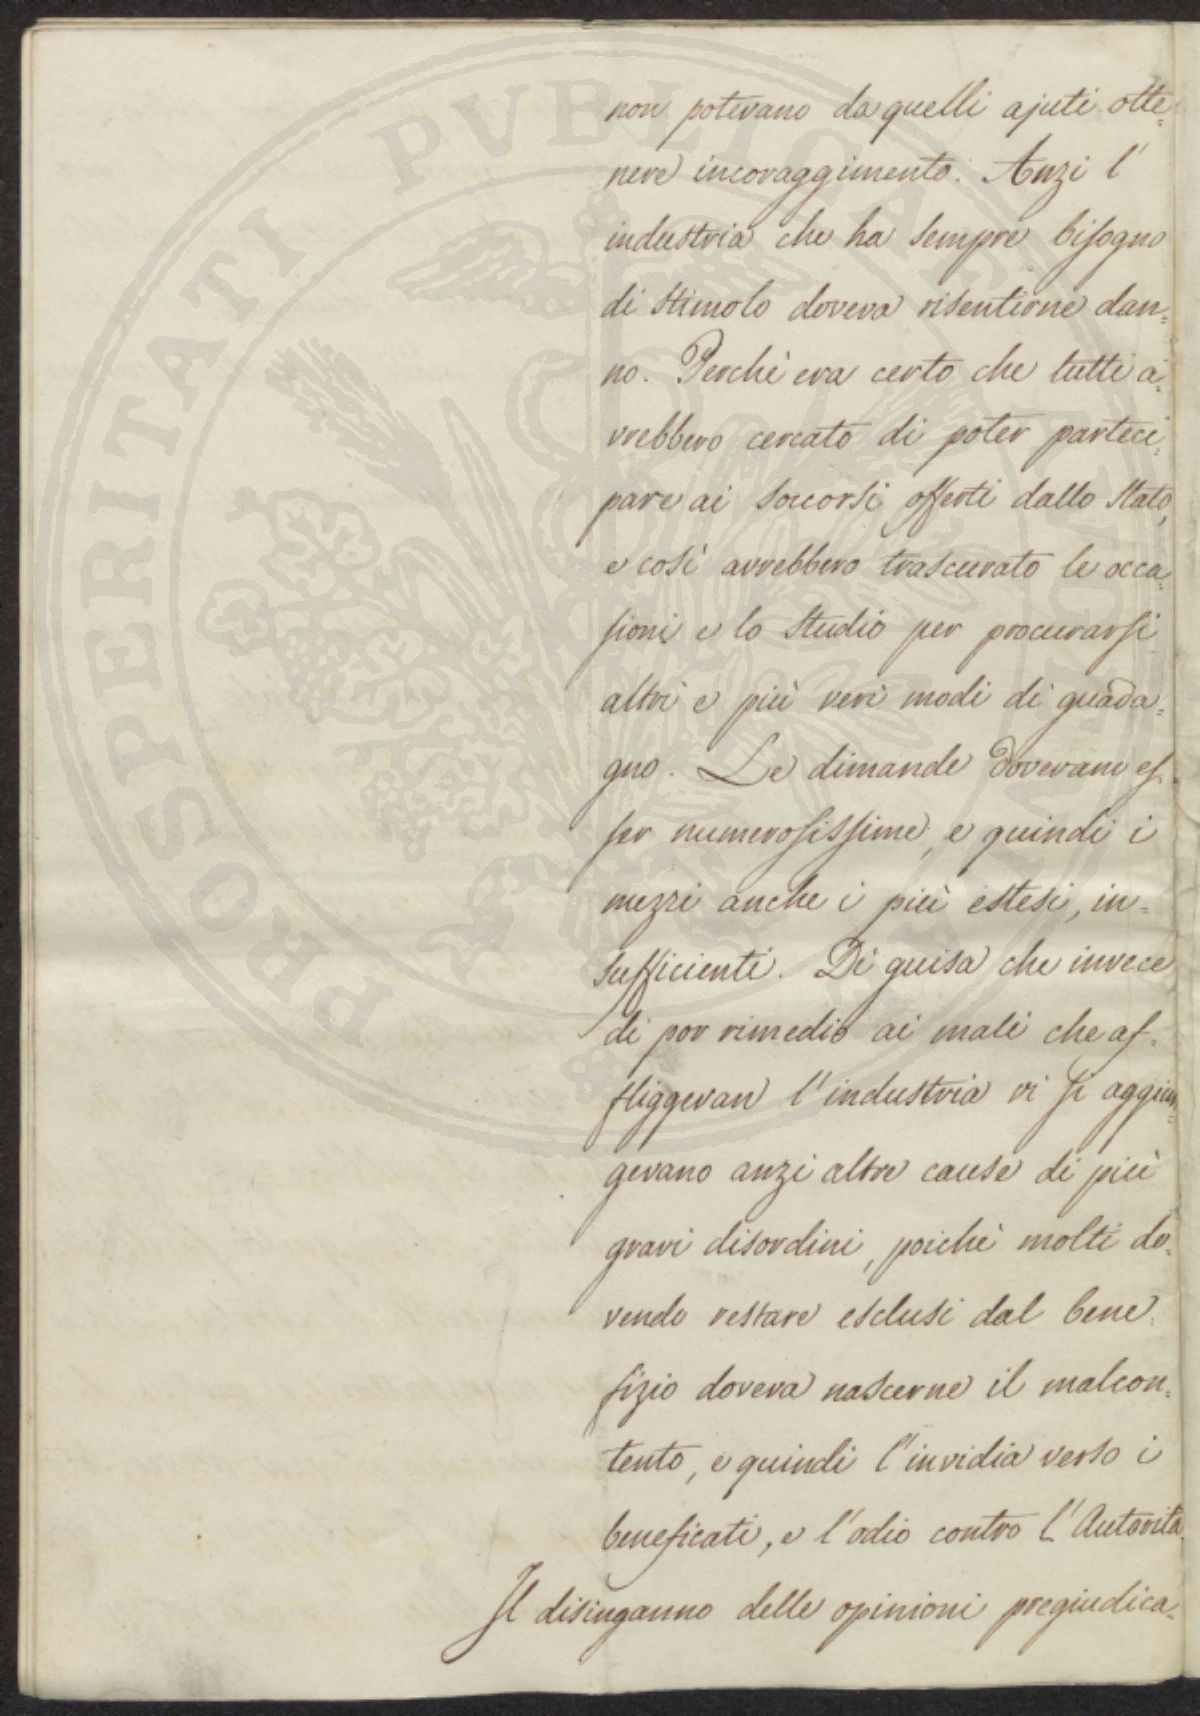 non potevano da quelli ajuti otte=
nere incoraggimento. Anzi l'
industria che ha sempre bisogno
di stimolo doveva risentirne dan=
no. Perchè era certo che tutti a=
vrebbero cercato di poter parteci=
pare ai soccorsi offerti dallo Stato,
e così avrebbero trascurato le occa=
sioni e lo studio per procurarsi
altri e più veri modi di guada=
gno. Le dimande dovevano es=
ser numerosissime, e quindi i
mezzi anche i più estesi, in=
sufficienti. Di guisa che invece
di por rimedio ai mali che af=
fliggevan l'industria vi si aggiun=
gevano anzi altre cause di più
gravi disordini, poichè molti do=
vendo restare esclusi dal bene=
fizio doveva nascerne il malcon=
tento, e quindi l'invidia verso i
beneficati, e l'odio contro l'Autorità
Il disinganno delle opinioni pregiudica=
PROSPERITATI PVBLICAE